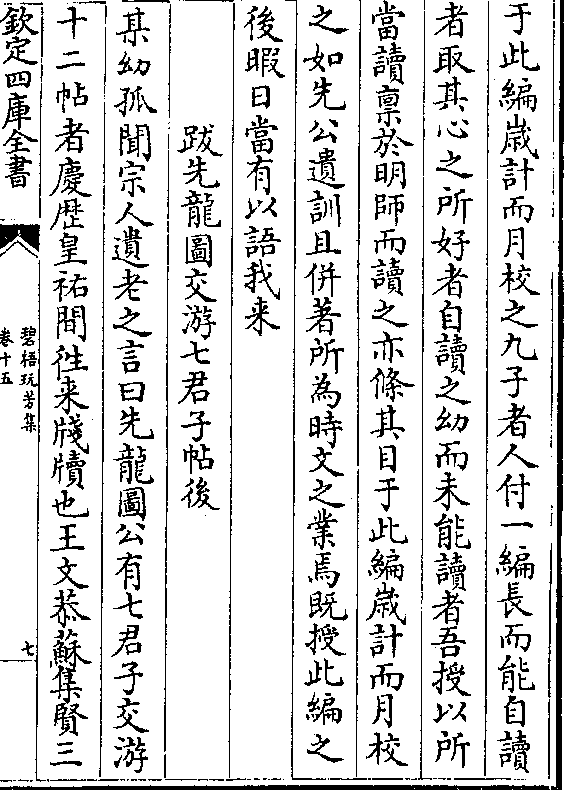 于此編歲計而月校之九子者人付一編長而能自讀
者取其心之所好者自讀之幼而未能讀者吾授以所
當讀禀於明師而讀之亦條其目于此編歲計而月校
之如先公遺訓且併著所為時文之業焉既授此編之
後暇日當有以語我来
跋先龍圖交游七君子帖後
某幼孤聞宗人遺老之言曰先龍圖公有七君子交游
十二帖者慶歴皇祐間徃来牋牘也王文恭蘇集賢三
欽定四庫全書
碧梧玩芳集
卷十五
七